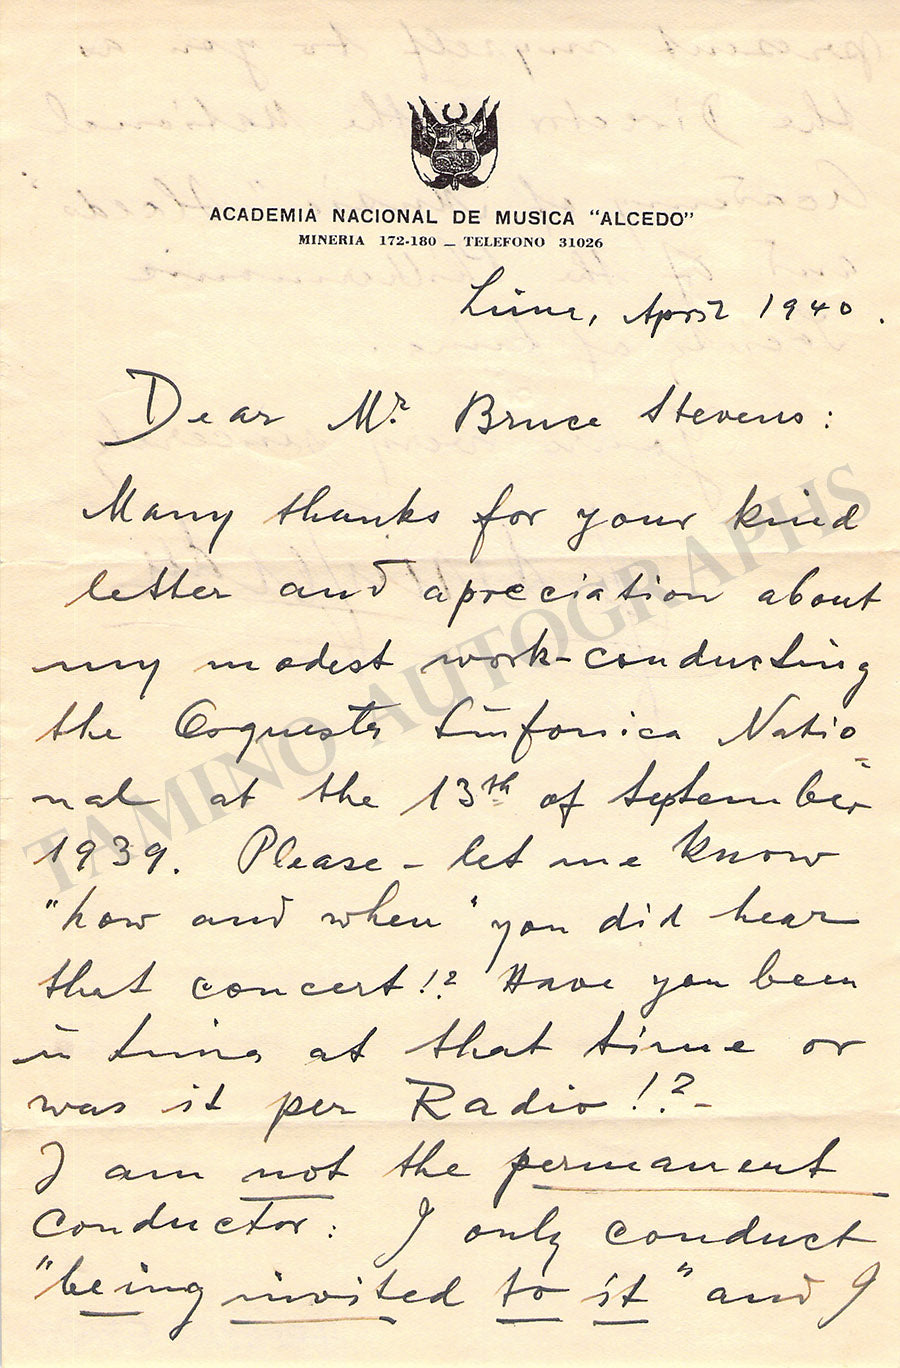 ACADEMIA NACIONAL DE MUSICA "ALCEDO"
MINERIA 172-180 — TELEFONO 31026
Lima, April 1940.
Dear Mr Bruce Stevens:
Many thanks for your kind
letter and apreciation about
my modest work-conducting
the Orquesta Sinfonica Natio-
nal at the 13th of September
1939. Please - let me know
"how and when" you did hear
that concert!? Have you been
in Lima at that time or
was it per Radio!?-
I am not the permanent
conductor: I only conduct
"being invited to it" and I
TAMINO AUTOGRAPHS